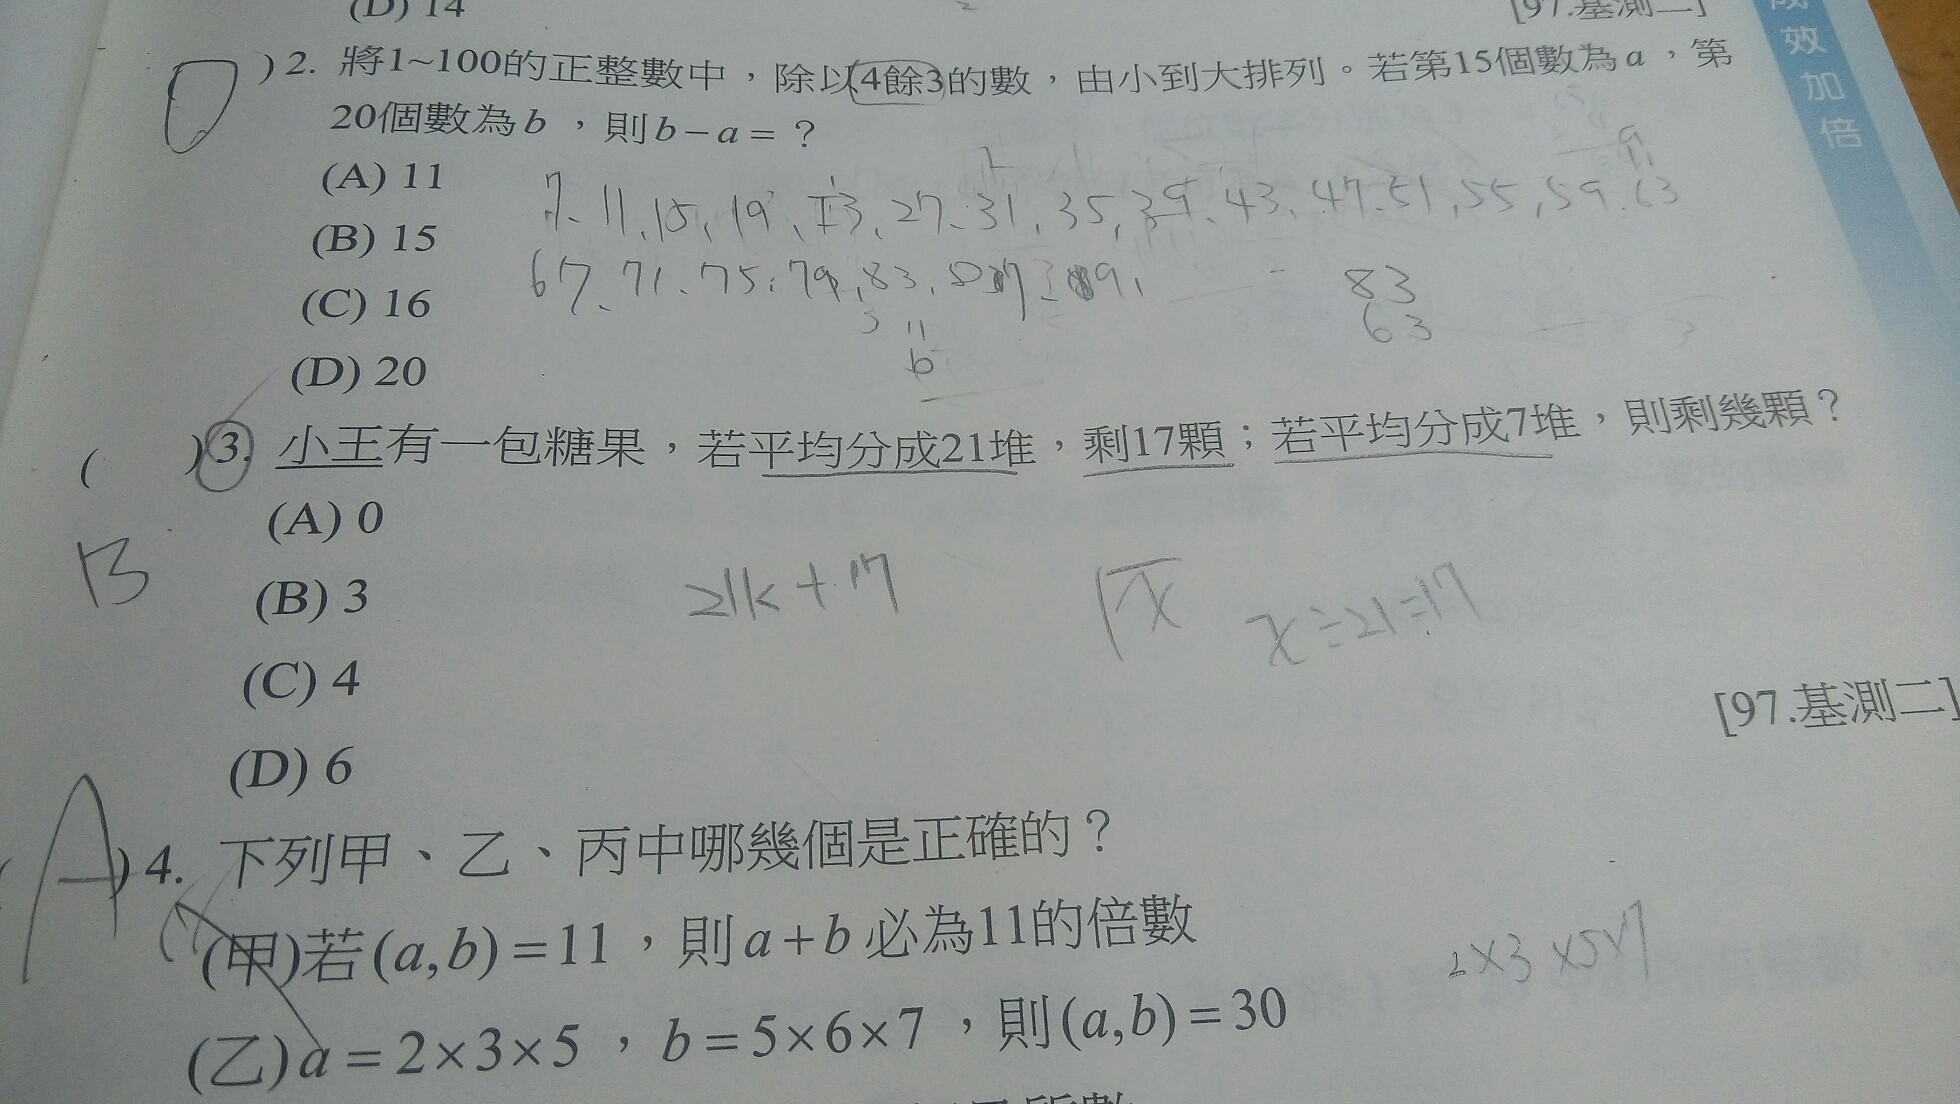 (D) 14
[97.基測二]
效加倍
D
)2. 將1~100的正整數中，除以4餘3的數，由小到大排列。若第15個數為a，第
20個數為b，則b－a=？
(A) 11
(B) 15
(C) 16
(D) 20
7、11、15、19、23、27、31、35、39、43、47、51、55、59、63
67、71、75、79、83、
83
63
b
( )3. 小王有一包糖果，若平均分成21堆，剩17顆；若平均分成7堆，則剩幾顆？
(A) 0
(B) 3
B
21k+17
x÷21=17
(C) 4
[97.基測二]
(D) 6
(A)4. 下列甲、乙、丙中哪幾個是正確的？
(甲)若(a,b)=11，則a+b必為11的倍數
2×3×5×7
(乙)a=2×3×5，b=5×6×7，則(a,b)=30